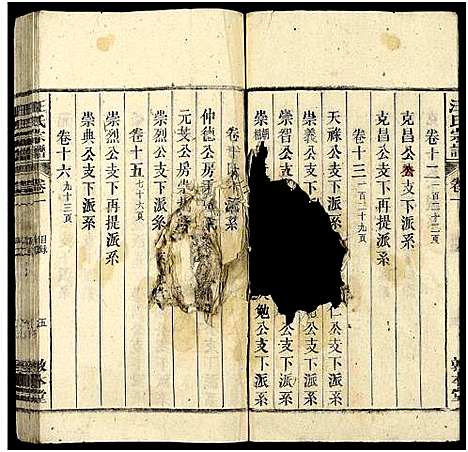 汪氏宗譜
卷一
敦本堂
卷十二 一百三十二頁
克昌公支下派系
克昌公支下再提派系
卷十三 一百二十九頁
天祿公支下派系
仁公支下派系
崇義公支下派系
崇智公支下派系
勉公支下派系
崇
卷十
仲德公房
系
元芰公房崇
派系
崇烈公支下派系
卷十五 七十六頁
崇烈公支下再提派系
崇典公支下派系
卷十六 九十三頁
汪氏宗譜
卷一
目錄
五
敦本堂